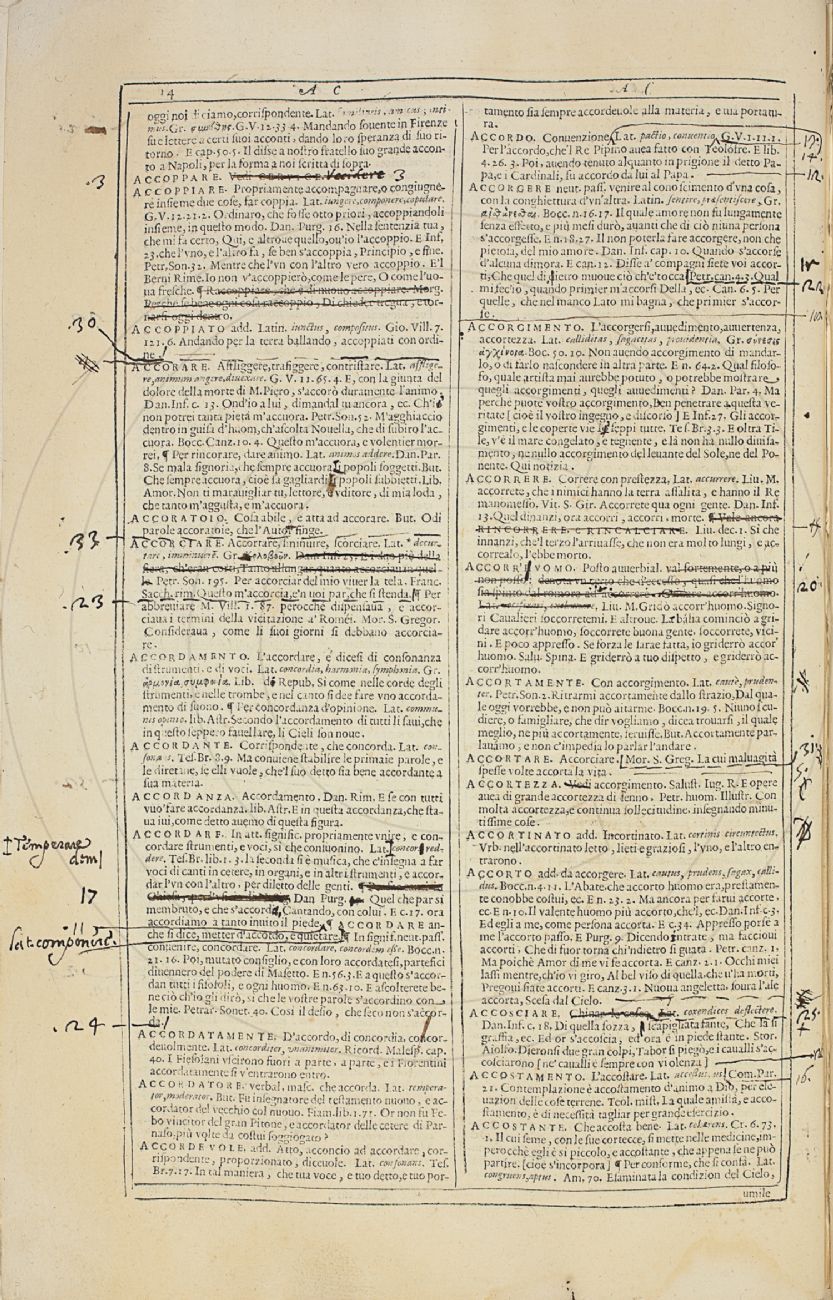 14 A C
oggi noi diciamo, corrispondente. Lat.
mus. Gr. G. V. 12. 33. 4. Mandando souente in Firenze
sue lettere a certi suoi acconti, dando loro speranza di suo ri-
torno. E cap. 50. 5. Il disse a nostro fratello suo grande accon-
to a Napoli, per la forma a noi scritta di sopra.
ACCOPPARE. Vedi Vccidere 3
.3
ACCOPPIARE. Propriamente accompagnare, o congiugne-
re insieme due cose, far coppia. Lat. iungere, componere, copulare.
G. V. 12. 21. 2. Ordinaro, che fosse otto priori, accoppiandoli
insieme, in questo modo. Dan. Purg. 16. Nella sentenzia tua,
che mi fa certo, Qui, e altroue quello, ou'io l'accoppio. E Inf.
23. che l'vno, e l'altro fa, se ben s'accoppia, Principio, e fine.
Petr. Son. 32. Mentre che l'vn con l'altro vero accoppio. E'l
Berni Rime. Io non v'accoppierò, come le pere, O come l'uo-
ua fresche. ¶ Raccoppiare, che è di nuouo accoppiare. Morg.
Perche se bene ogni cosa raccoppio, Di chieder tregua, e tor-
narsi oggi dentro.
.30
ACCOPPIATO add. Latin. iunctus, compositus. Gio. Vill. 7.
121. 6. Andando per la terra ballando, accoppiati con ordi-
ne.
ACCORARE. Affliggere, trafiggere, contristare. Lat. afflige-
re, animum angere, diuexare. G. V. 11. 65. 4. E, con la giunta del
dolore della morte di M. Piero, s'accorò duramente l'animo.
Dan. Inf. c. 13. Ond'io a lui, dimandal tu ancora, ec. Ch'i
non potrei tanta pietà m'accuora. Petr. Son. 52. M'agghiaccio
dentro in guisa d'huom, ch'ascolta Nouella, che di subito l'ac-
cuora. Bocc. Canz. 10. 4. Questo m'accuora, e volentier mor-
rei, ¶ Per rincorare, dare animo. Lat. animos addere. Dan. Par.
8. Se mala signoria, che sempre accuora I popoli soggetti. But.
Che sempre accuora, cioè fa gagliardi i popoli subbietti. Lib.
Amor. Non ti marauigliar tu, lettore, o vditore, di mia loda,
che tanto m'aggusta, e m'accuora.
ACCORATOIO. Cosa abile, e atta ad accorare. But. O di
parole accoratoie, che l'Autor finge.
.33
ACCORCIARE. Accortare, sminuire, scorciare. Lat.
Gr. Dan. Inf. 25. E i duo piè della
fiera, ch'eran corti, Tanto allungar, quanto accorciauan quel-
le. Petr. Son. 195. Per accorciar del mio viuer la tela. Franc.
Sacch. rim. Questo m'accorcia, e'n uoi par, che si stenda. ¶ Per
.23
abbreuiare M. Vill. 1. 87. perocchè dispensaua, e accor-
ciaua i termini della vicitazione a' Roméi. Mor. S. Gregor.
Consideraua, come li suoi giorni si debbano accorcia-
re.
ACCORDAMENTO. L'accordare, e dicesi di consonanza
di strumenti, e di voci. Lat. concordia, harmonia, symphonia. Gr.
ἁρμονία, συμφωνία. Lib. de Repub. Si come nelle corde degli
strumenti, e nelle trombe, e nel canto si dee fare vno accorda-
mento di suono. ¶ Per concordanza d'opinione. Lat. commu-
nis opinio. lib. Astr. Secondo l'accordamento di tutti li saui, che
in questo seppero fauellare, li Cieli son noue.
ACCORDANTE. Corrispondente, che concorda. Lat. con-
sonans. Tes. Br. 8. 9. Ma conuiene stabilire le primaie parole, e
le diretane, se elli vuole, che'l suo detto sia bene accordante a
sua materia.
ACCORDANZA. Accordamento. Dan. Rim. E se con tutti
vuo' fare accordanza. lib. Astr. E in questa accordanza, che sta-
ua iui, come detto auemo di questa figura.
ACCORDARE. In att. signific. propriamente vnire, e con-
cordare strumenti, e voci, sì che consuonino. Lat. concordi red-
dere. Tes. Br. lib. 1. 3. la seconda si è musica, che c'insegna a far
voci di canti in cetere, in organi, e in altri strumenti, e accor-
dar l'vn con l'altro, per diletto delle genti. ¶
Dan Purg. Quel che par sì
membruto, e che s'accorda, Cantando, con colui. E c. 17. ora
accordiamo a tanto inuito il piede. ¶ ACCORDARE an-
che si dice, metter d'accordo, e quietare. ¶ In signif. neut. pass.
conuenire, concordare. Lat. concordare, concordem esse. Bocc. n.
21. 16. Poi, mutato consiglio, e con loro accordatesi, partefici
diuennero del podere di Masetto. E n. 56. 3. E a questo s'accor-
dan tutti i filosofi, e ogni huomo. E n. 63. 10. E ascolterete be-
ne ciò ch'io gli dirò, sì che le vostre parole s'accordino con
le mie. Petrar. Sonet. 40. Così il desio, che seco non s'accor-
da.
Temperare
17
.115
lat. componere.
.24
ACCORDATAMENTE. D'accordo, di concordia, concor-
deuolmente. Lat. concorditer, vnanimiter. Ricord. Malesp. cap.
40. I Fiesolani vscirono fuori a parte, a parte, e i Fiorentini
accordatamente si v'entrarono entro.
ACCORDATORE. verbal. masc. che accorda. Lat. tempera-
tor, moderator. But. Fu insegnatore del testamento nuouo, e ac-
cordator del vecchio col nuouo. Fiam. lib. 1. 71. Or non fu Fe-
bo vincitor del gran Pitone, e accordator delle cetere di Par-
naso, più volte da costui soggiogato?
ACCORDEVOLE. add. Atto, acconcio ad accordare, cor-
rispondente, proporzionato, diceuole. Lat. consonans. Tes.
Br. 7. 17. In tal maniera, che tua voce, e tuo detto, e tuo por-
tamento sia sempre accordeuole alla materia, e tua portatu-
ra.
ACCORDO. Conuenzione, Lat. pactio, conuentio, G. V. 1. 11. 1.
Per l'accordo, che'l Re Pipino auea fatto con Teolofre. E lib.
4. 26. 3. Poi, auendo tenuto alquanto in prigione il detto Pa-
pa, e i Cardinali, su accordo da lui al Papa.
ACCORGERE neut. pass. venire al conoscimento d'vna cosa,
con la conghiettura d'vn'altra. Latin. sentire, praesentiscere, Gr.
αἰσθέσθαι. Bocc. n. 16. 17. Il quale amore non fu lungamente
senza effetto, e più mesi durò, auanti che di ciò niuna persona
s'accorgesse. E n. 18. 27. Il non poterla fare accorgere, non che
pietosa, del mio amore. Dan. Inf. cap. 10. Quando s'accorse
d'alcuna dimora. E can. 12. Disse a' compagni siete voi accor-
ti, Che quel dirietro muoue ciò ch'e' tocca, Petr. can. 4. 3. Qual
mi fec'io, quando primier m'accorsi Della, ec. Can. 6. 5. Per
quelle, che nel manco Lato mi bagna, che primier s'accor-
se.
ACCORGIMENTO. L'accorgersi, auuedimento, auuertenza,
accortezza. Lat. calliditas, sagacitas, prouidentia. Gr. σύνεσις
ἀγχίνοια. Boc. 50. 10. Non auendo accorgimento di mandar-
lo, o di farlo nascondere in altra parte. E n. 64. 2. Qual filoso-
fo, quale artista mai aurebbe potuto, o potrebbe mostrare
quegli accorgimenti, quegli auuedimenti? Dan. Par. 4. Ma
perche puote vostro accorgimento, Ben penetrare a questa ve-
ritate [cioè il vostro ingegno, e discorso] E Inf. 27. Gli accor-
gimenti, e le coperte vie I' seppi tutte. Tes. Br. 3. 3. E oltra Ti-
le, v'è il mare congelato, e tegnente, e là non ha nullo diuisa-
mento, ne nullo accorgimento del leuante del Sole, ne del Po-
nente. Qui notizia.
ACCORRERE. Correre con prestezza, Lat. accurrere. Liu. M.
accorrete, che i nimici hanno la terra assalita, e hanno il Re
manomesso. Vit. S. Gir. Accorrete qua ogni gente. Dan. Inf.
13. Quel dinanzi, ora accorri, accorri, morte. ¶ Vale ancora
RINCORRERE, E RINCALCIARE. Liu. dec. 1. Sì che
innanzi, che'l terzo l'arriuasse, che non era molto lungi, e ac-
correalo, l'ebbe morto.
ACCORR' VOMO. Posto auuerbial. val fortemente, o a più
non posso: denota vn certo che d'eccesso, quasi che l'huomo
sia spinto dal romore ad accorrere.
Liu. M. Gridò accorr'huomo. Signo-
ri Caualieri soccorretemi. E altroue. La balia cominciò a gri-
dare accorr'huomo, soccorrete buona gente, soccorrete, vici-
ni. E poco appresso. Se forza le sarae fatta, io griderrò accor'
huomo. Salu. Spina. E griderrò a tuo dispetto, e griderrò ac-
corr'huomo.
ACCORTAMENTE. Con accorgimento. Lat. cautè, pruden-
ter. Petr. Son. 2. Ritrarmi accortamente dallo strazio, Dal qua-
le oggi vorrebbe, e non può aitarme. Bocc. n. 19. 5. Niuno scu-
diere, o famigliare, che dir vogliamo, dicea trouarsi, il quale
meglio, ne più accortamente, seruisse. But. Accortamente par-
lauamo, e non c'impedía lo parlar l'andare.
ACCORTARE. Accorciare. [Mor. S. Greg. La cui maluagità
spesse volte accorta la vita.
ACCORTEZZA. Vedi accorgimento. Salust. Iug. R. E opere
auea di grande accortezza di senno. Petr. huom. Illustr. Con
molta accortezza, e continua sollecitudine, insegnando minu-
tissime cose.
ACCORTINATO add. Incortinato. Lat. cortinis circumsectus.
Vrb. nell'accortinato letto, lieti e graziosi, l'vno, e l'altro en-
trarono.
ACCORTO add. da accorgere. Lat. cautus, prudens, sagax, calli-
dus. Bocc. n. 4. 11. L'Abate, che accorto huomo era, prestamen-
te conobbe costui, ec. E n. 23. 2. Ma ancora per farui accorte.
ec. E n. 10. Il valente huomo più accorto, che'l, ec. Dan. Inf. c. 3.
Ed egli a me, come persona accorta. E c. 34. Appresso porse a
me l'accorto passo. E Purg. 9. Dicendo intrate, ma faccioui
accorti. Che di fuor torna chi'ndietro si guata. Petr. canz. 1.
Ma poichè Amor di me vi fe accorta. E canz. 2. 1. Occhi miei
lassi mentre, ch'io vi giro, Al bel viso di quella, che v'ha morti,
Pregoui siate accorti. E canz. 3. 1. Nuoua angeletta, soura l'ale
accorta, Scesa dal Cielo.
ACCOSCIARE. Chinar le cosce, Lat. coxendices deflectere.
Dan. Inf. c. 18. Di quella sozza, scapigliata fante, Che là si
graffia, ec. Ed or s'accoscia, ed ora è in piede stante. Stor.
Aiolfo. Dieronsi due gran colpi, Tabor si piegò, e i caualli s'ac-
cosciarono [ne' caualli è sempre con violenza]
ACCOSTAMENTO. L'accostare. Lat. [Com. Par.
21. Contemplazione è accostamento d'animo a Dio, per ele-
uazion delle cose terrene. Teol. mist. La quale amistà, e acco-
stamento, è di necessità tagliar per grande esercizio.
ACCOSTANTE. Che accosta bene. Lat. Cr. 6. 73.
1. Il cui seme, con le sue cortecce, si mette nelle medicine, im-
perocchè egli è sì piccolo, e accostante, che appena se ne può
partire. [cioè s'incorpora] ¶ Per conforme, che si confà. Lat.
congruens, aptus. Am. 70. Esaminata la condizion del Cielo,
umile